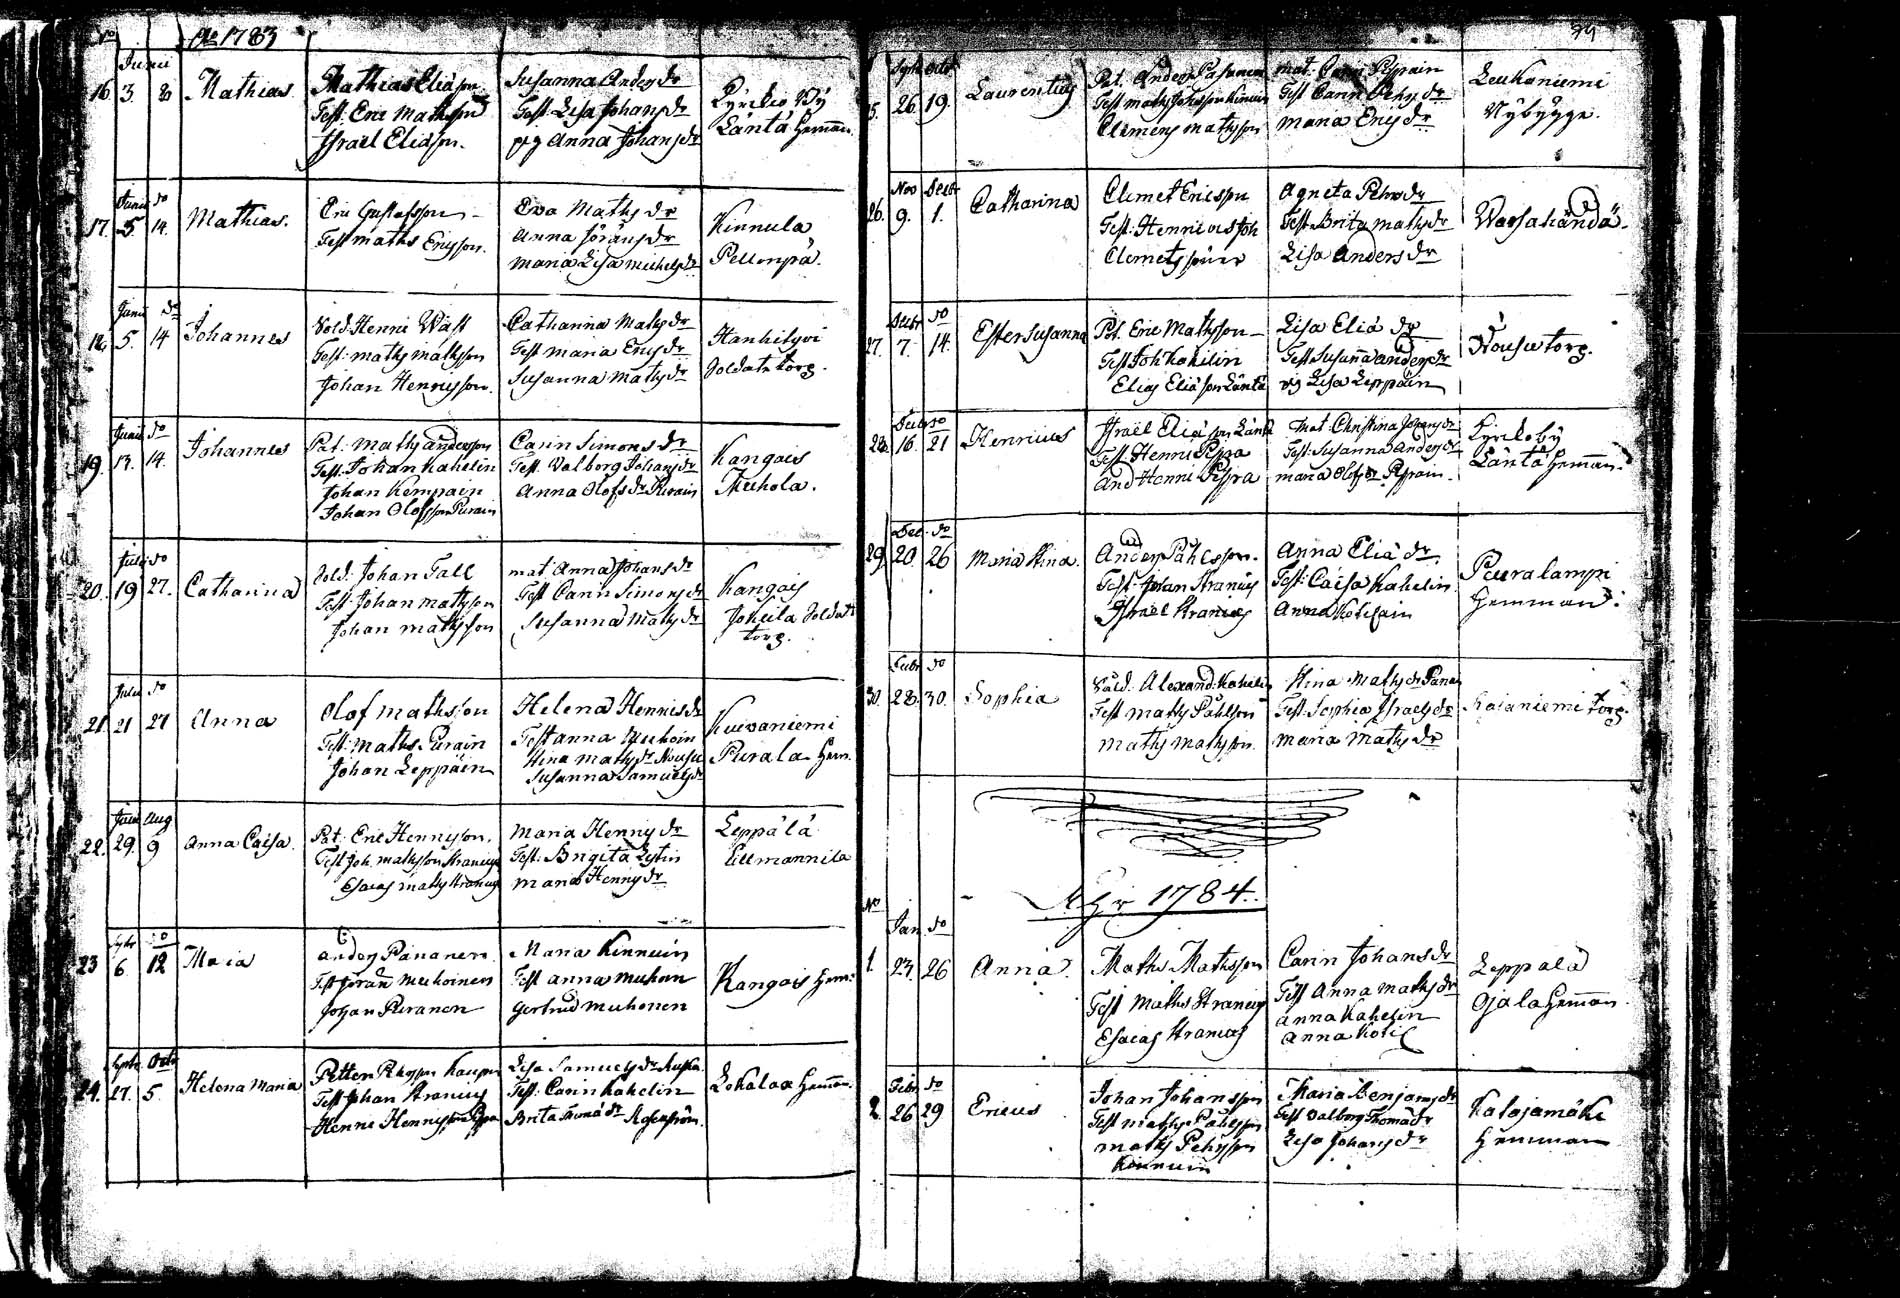 No Ao 1783
Junii
16. 3. 8 Mathias. Mathias Eliäson Susanna Anders dr Kyrckio By
Test: Eric Mathsson Test: Lisa Johans dr Läntä Hemman.
Israel Eliäson. pig Anna Johans dr
Junii do
17. 5 14. Mathias. Eric Gustafsson Ewa Maths dr Kinnula
Test maths Ericsson. Anna Jörans dr Pellonpä.
maria Lisa michels dr
Junii do
18. 5. 14 Johannes Sold. Henric Wäst Catharina Maths dr Hanhilyoi
Test: maths mathsson Test maria Erics dr Soldate torp.
Johan Henricsson. Susanna Maths dr
Junii do
19. 13. 14. Johannes Pat: Maths andersson Carin Simons dr Kangais
Test: Johan Kahelin Test. Valborg Johans dr Muhola.
Johan Kempain Anna Olofs dr Purain
Johan Olofsson Purain
Julii do
20. 19 27. Catharina Sold: Johan Fall mat: Anna Johans dr Kangais
Test: Johan mathsson Test Carin Simons dr Jokela Soldat
Johan mathsson Susanna Maths dr torp.
Julii do
21. 21 27 Anna Olof mathsson Helena Henrics dr Kuivaniemi
Test: maths Purain Test anna Muhoin Purala Hem.
Johan Leppäin Stina maths dr Housu
Susanna Samuels dr
Aug
22. 29. 9 Anna Caisa. Pat: Eric Henricson. Maria Henrics dr Leppälä
Test Joh. mathsson Stranius Test: Brigita Lytin Eillmannila
Esaias maths Stranius maria Henrics dr
Sptr do
23 6. 12 Maria anders Pananen. Maria Kinnuin Kangais Hem:
Test Jöran muhoinen Test anna muhoin
Johan Puranen Gertrud muhonen
Septr Octr
24. 27. 5. Helena Maria Petter Lisa Samuels dr Lokalax Hemman.
Test Johan Stranius Test: Carin Kahelin
Henric Henricsson Pipra Brita Thoma dr
39
Sptr Octr
25. 26. 19. Laurentius Pat. Anders Pananen mat: Carin Piprain Leukaniemi
Test maths Johansson Kinnuin Test Carin Pehrs dr Nybygge.
Clemens mathsson maria Erics dr
Nov Decbr
26. 9. 1. Catharina Clemet Ericsson Agneta Pehrs dr Wassahända.
Test: Henric och Joh Test: Brita maths dr
Clemets söner Lisa Anders dr
Decbr do
27. 7. 14. Ester Susanna Pat. Eric Mathsson Lisa Eliä dr Housu torp.
Test Joh Kahelin Test Susanna anders dr
Elias Eliäson Läntä pig Lisa Leppäin
Decbr do
28. 16. 21 Henricus Israel Eliäson Läntä Mat: Christina Johans dr Kyrckoby
Test Henric Pipra Test: Susanna anders dr Läntä Hemman.
And Henric Pipra maria Olofs dr Pipain.
Dec. do
29. 20. 26 Maria Stina. Anders Påhlsson. Anna Eliä dr Peuralampi
Test: Johan Stranius Test: Caisa Kahelin Hemman:
Israel Stranius Anna Kotilain
Decbr do
30. 28. 30. Sophia Sold: Alexand: Kahelin Stina Maths dr Panan Rajaniemi torp.
Test maths Påhlson Test: Sophia Israels dr
maths mathsson. maria Maths dr
No
Åhr 1784.
Jan. do
1. 23. 26 Anna. Maths Mathsson Carin Johans dr Leppälä
Test Maths Stranius Test Anna maths dr Ojala Hemman.
Esaias Stranius anna Kahelin
anna Kotil
Febr do
2. 26 29 Ericus Johan Johansson Maria Benjams dr Kalajamäki
Test maths Påhlsson Test Valborg Thoma dr Hemman
maths Pehrsson Lisa Johans dr
Kinnuin